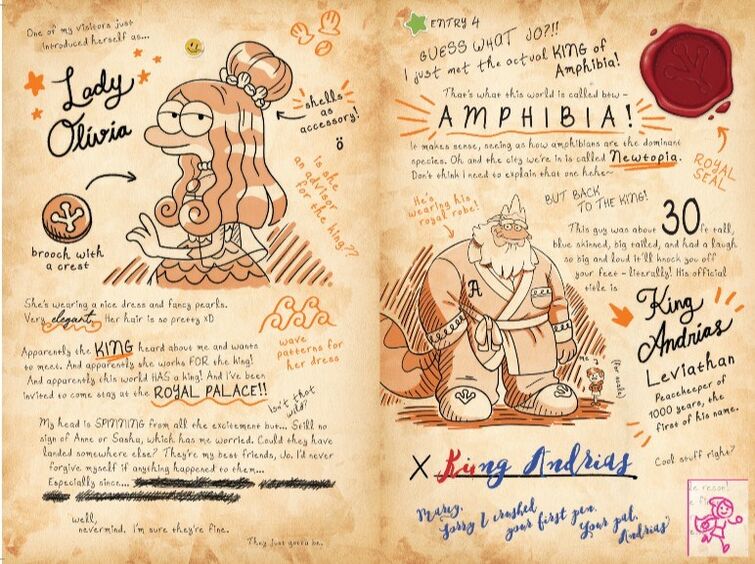 One of my visitors just
introduced herself as...
Lady
Olivia
shells
as
accessory!
ö
is she
an advisor
for the king??
brooch with
a crest
She's wearing a nice dress and fancy pearls.
Very elegant. Her hair is so pretty xD
wave
patterns for
her dress
Apparently the KING heard about me and wants
to meet. And apparently she works FOR the king!
And apparently this world HAS a king! And I've been
invited to come stay at the ROYAL PALACE!!
Isn't that
wild?
My head is SPINNING from all the excitement but... Still no
sign of Anne or Sasha, which has me worried. Could they have
landed somewhere else? They're my best friends, so. I'd never
forgive myself if anything happened to them...
Especially since...
well,
nevermind. I'm sure they're fine.
They just gotta be.
ENTRY 4
GUESS WHAT JO?!!
I just met the actual KING of
Amphibia!
That's what this world is called btw -
AMPHIBIA!
It makes sense, seeing as how amphibians are the dominant
species. Oh and the city we're in is called Newtopia.
Don't think I need to explain that one hehe~
ROYAL
SEAL
BUT BACK
TO THE KING!
He's
wearing his
royal robe!
This guy was about 30ft tall,
blue skinned, big tailed, and had a laugh
so big and loud it'll knock you off
your feet - literally! His official
title is
King
Andrias
Leviathan
Peacekeeper of
1000 years, the
first of his name.
A
me
(for scale)
Cool stuff right?
X King Andrias
Marcy,
Sorry I crushed
your first pen.
Your pal,
Andrias